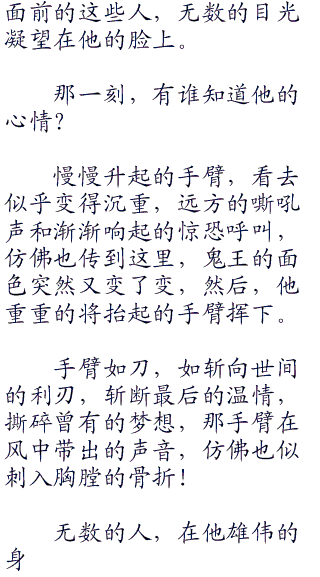 面前的这些人，无数的目光
凝望在他的脸上。
那一刻，有谁知道他的
心情？
慢慢升起的手臂，看去
似乎变得沉重，远方的嘶吼
声和渐渐响起的惊恐呼叫，
仿佛也传到这里，鬼王的面
色突然又变了变，然后，他
重重的将抬起的手臂挥下。
手臂如刀，如斩向世间
的利刃，斩断最后的温情，
撕碎曾有的梦想，那手臂在
风中带出的声音，仿佛也似
刺入胸膛的骨折！
无数的人，在他雄伟的
身